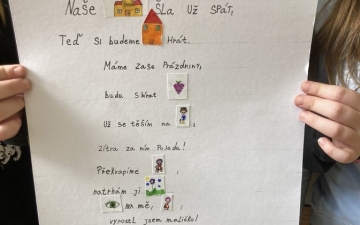 Naše šla už spáti,
Teď si budeme hrát.
Máme zase prázdniny,
budu sbírat
už se těším na ,
zítra za ním pojedu!
Překvapíme ,
natrhám jí
na mě, ,
vyrostl jsem maličko!